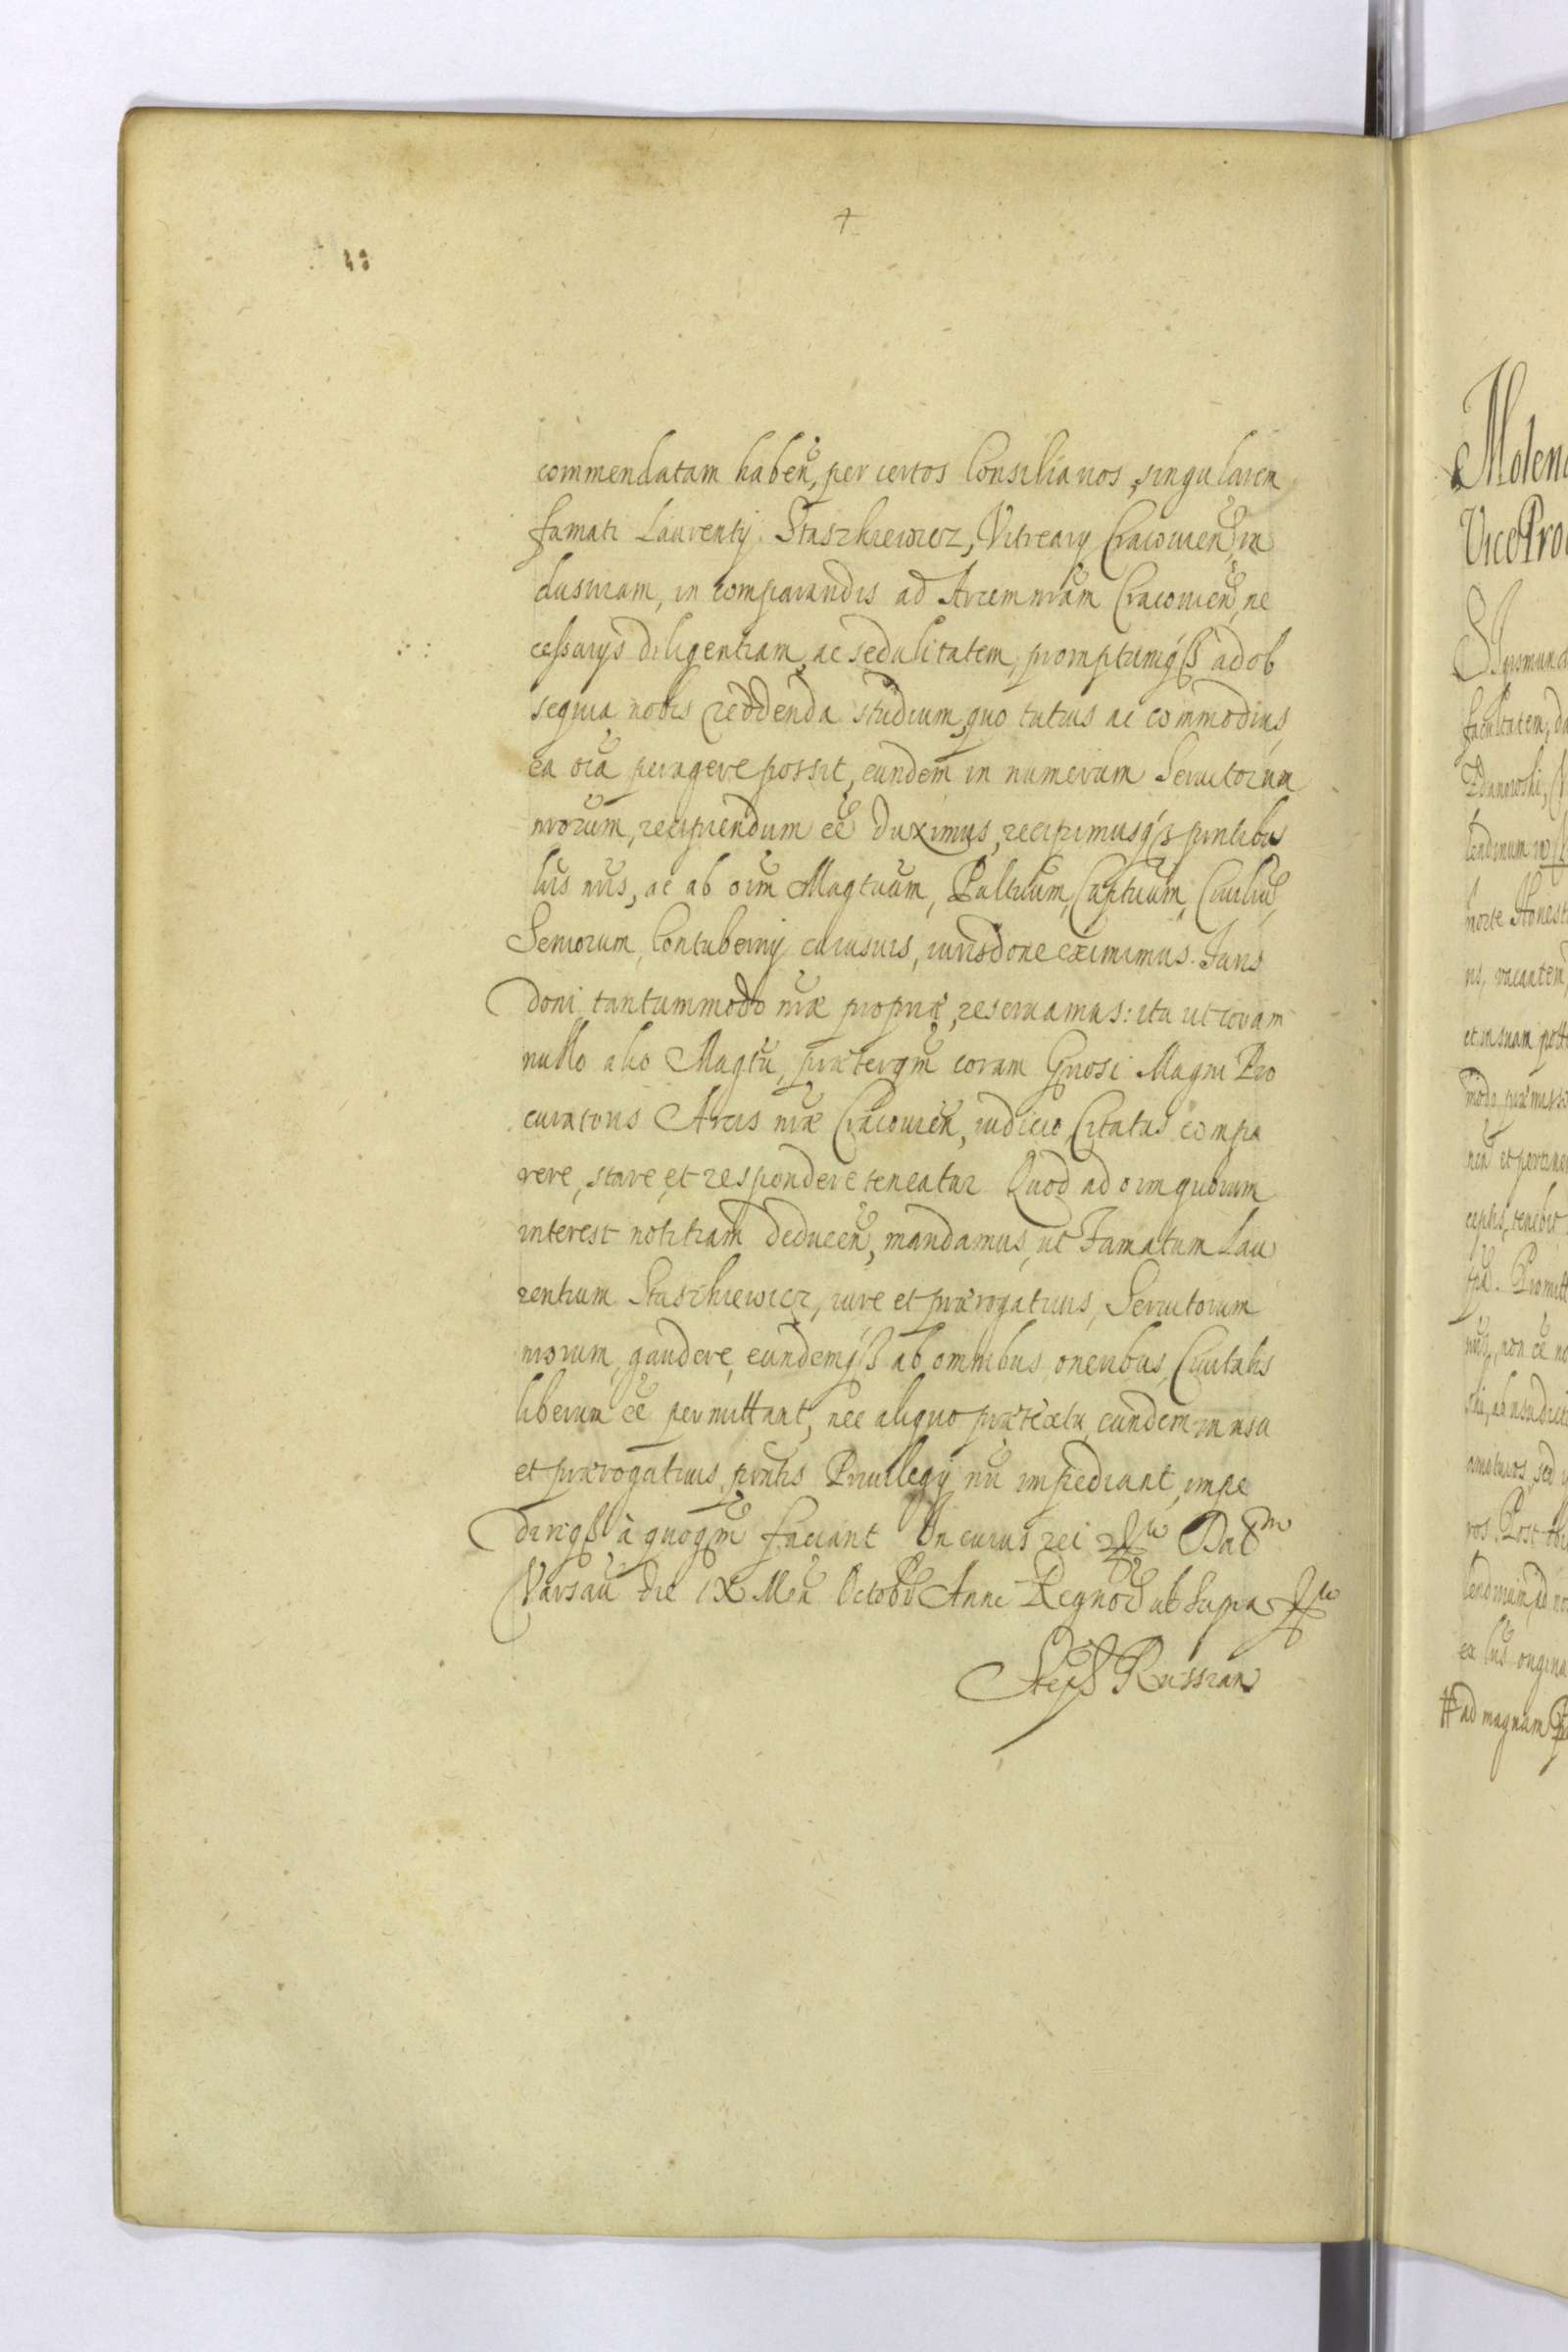 commendatam haben̄, per certos Consiliarios, singularem
famati Laurentij Staszkiewicz, Vitrearij Cracouien̄, in
dustriam, in comparandis ad Arcem nr̄am Cracouien̄, ne
cessarijs diligentiam, ac sedulitatem, promptumqʒ ad ob
sequia nobis reddenda studium, quo tutius ac commodius,
ea oı̄a peragere possit, eundem in numerum Seruitorum
nr̄orum, recipiendum eē duximus, recipimusqʒ pn̄tibus
lr̄is nr̄is, ac ab oı̄m Magtuum, Paltuum, Captuum, Ciuiliū,
Seniorum, Contubernij cuiusuis, iurisdōne eximimus. Juris
doni tantummodo nr̄æ propriæ, reseruamus: ita ut coram
nullo alio Magtu, præterqm̄ coram Gnosi Magni Pro
curatoris Arcis nr̄æ Cracouien̄, iudicio Citatus compa
rere, stare, et respondere teneatur Quod ad oı̄m quorum
interest notitiam deducen̄, mandamus, ut Famatum Lau
rentium Staszkiewicz, iure et prærogatiuis, Seruitorum
nr̄orum, gaudere, eundemqʒ ab omnibus oneribus, Ciuitatis
liberum eē permittant, nec aliquo prætextu, eundem in usu
et prærogatiuis pn̄tis Priuilegij nr̄i impediant, impe
diriqʒ à quoqm̄ faciant In cuius rei Dat
Varsau̅ die IX Men̄ Octobr̄ Anni Regnor̄ ut supra
Steph Russian

Molen
Vice Pro
Sigismund
facultatem, da
Zdanowski,
lendinum in
morte Honest
ns, vacantem
et in suam potte
modo, præmisso
nen̄ et pertinen
ceptis, tenebit
Promitt
nr̄is, non eē no
ski, ab usu
amoturos, sed
ros. Post
lendinum, ad no
ex lr̄is origina
# ad magnam